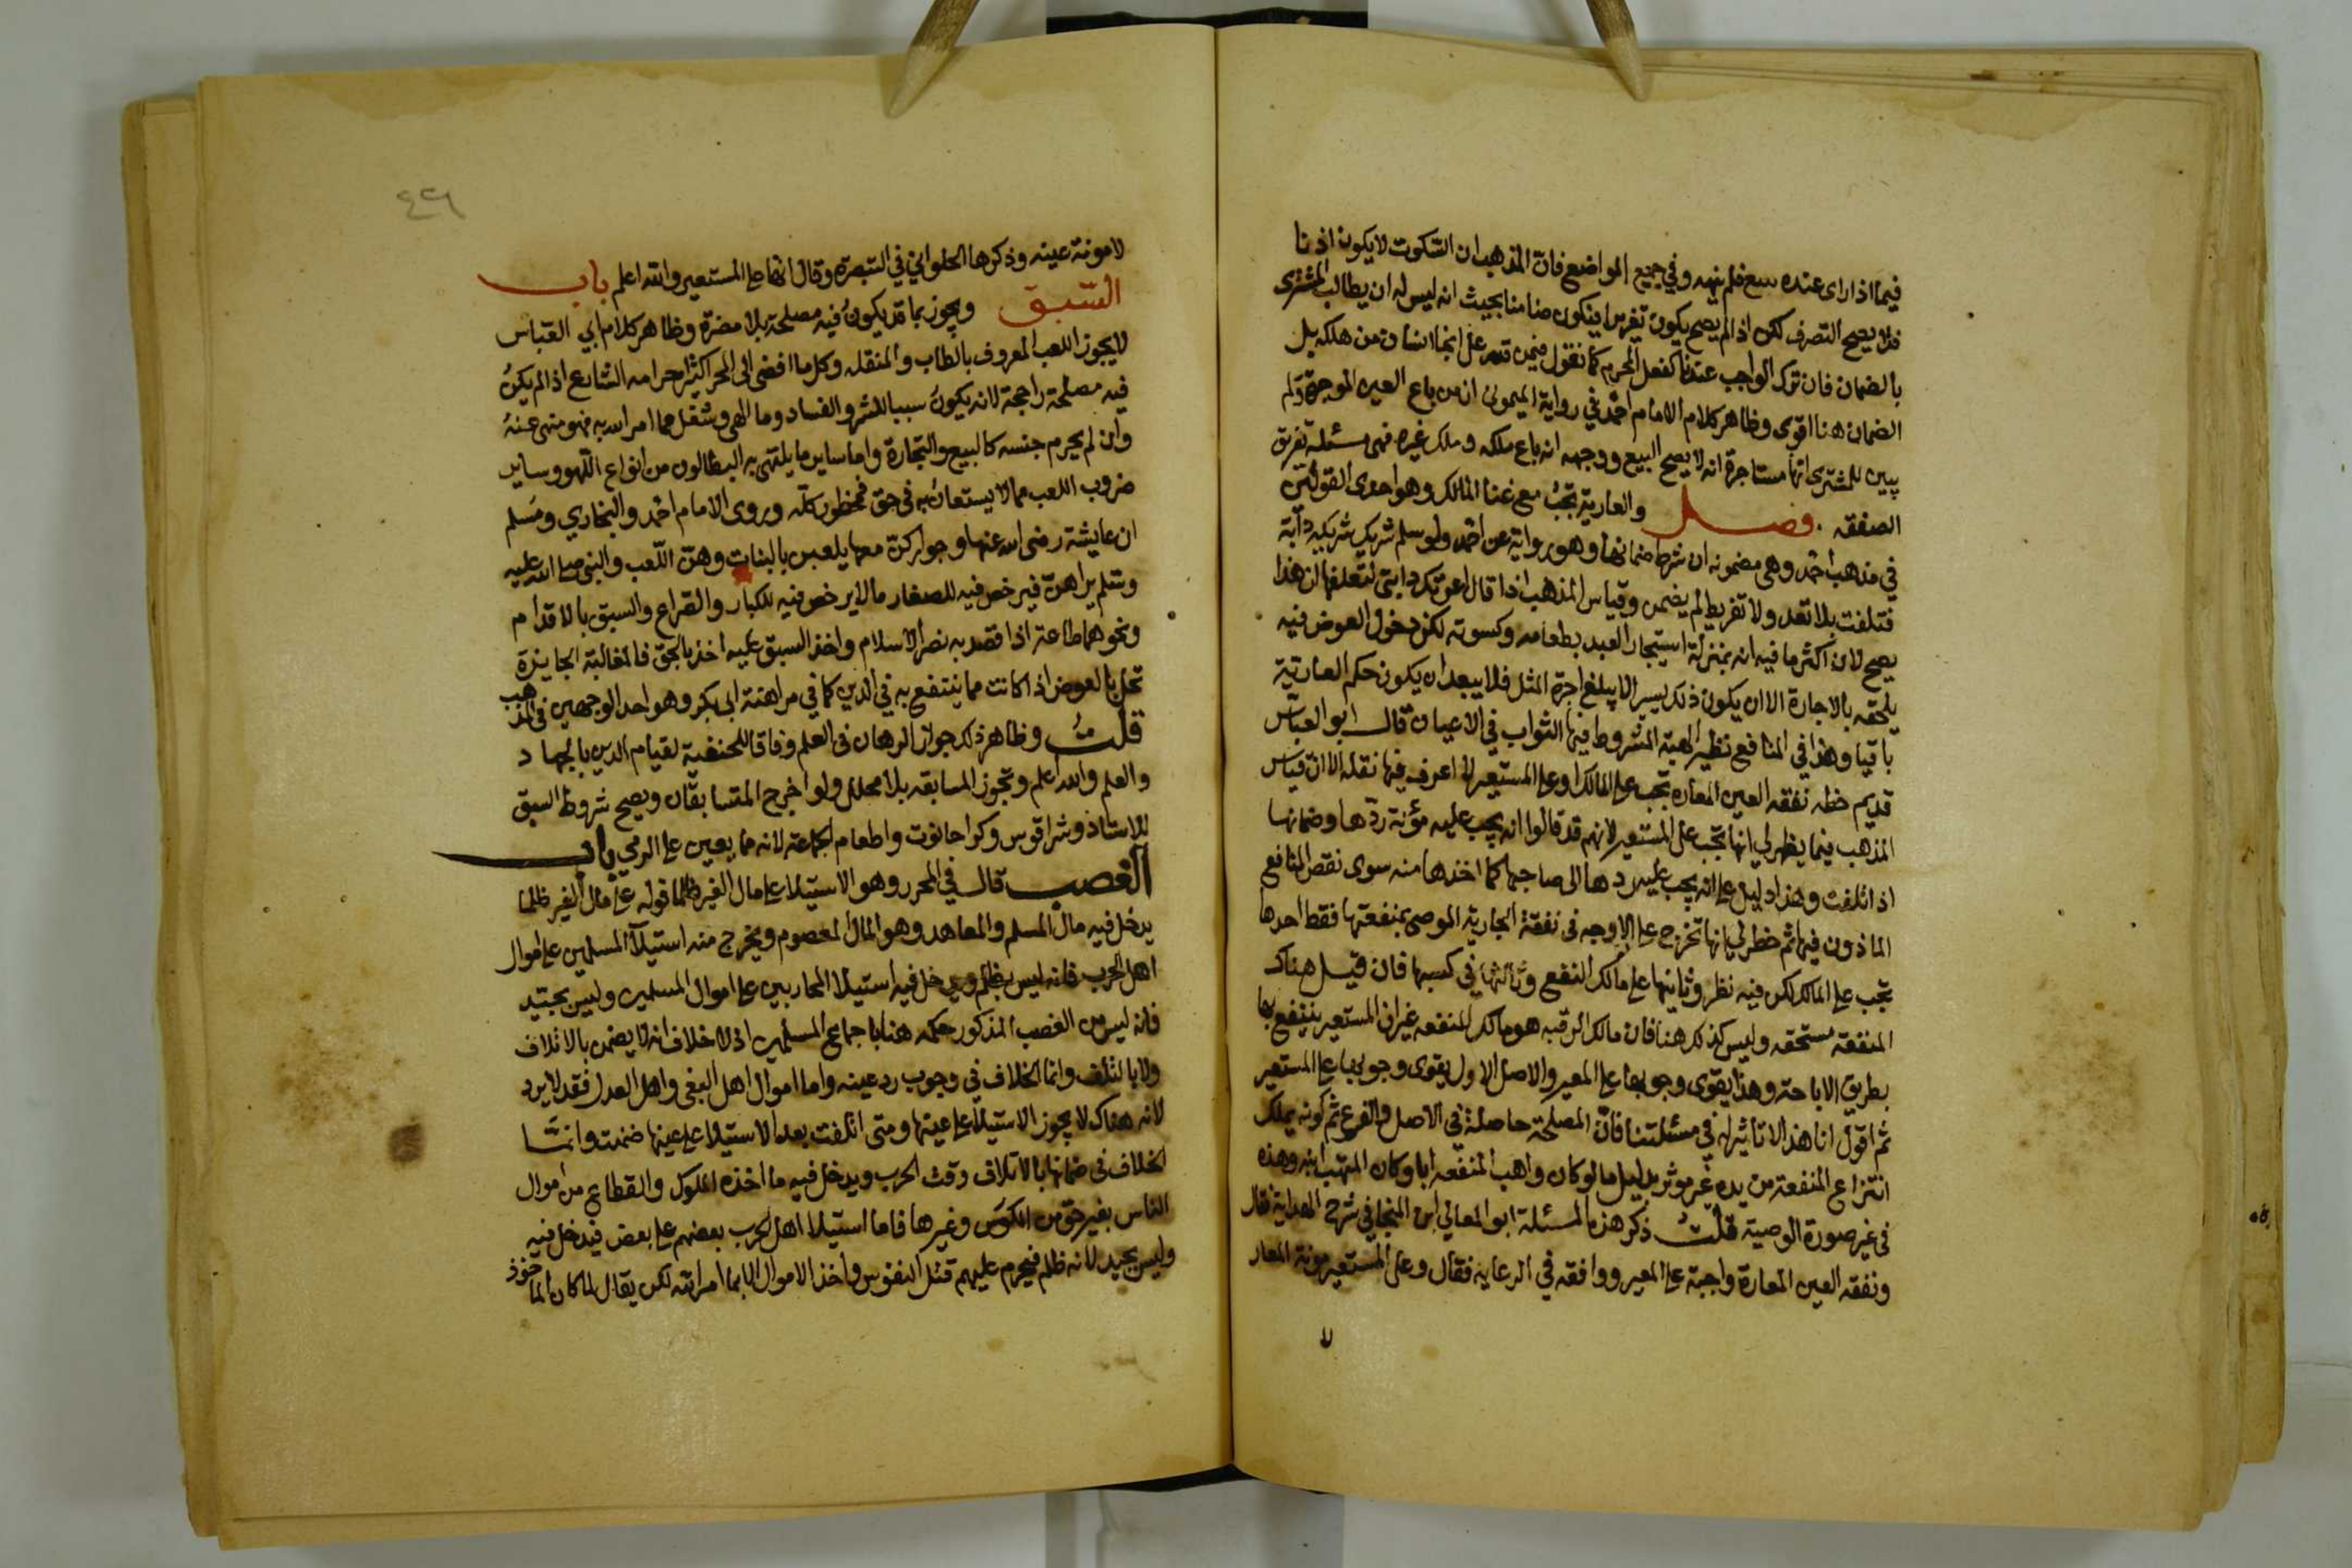 فيما اذا راى عنده يبيع فلم ينهه وفي جميع المواضع فان المذهب ان السكوت لا يكون اذنا
فلا يصح التصرف لكن اذا لم يصح يكون تغريرا فيكون ضامنا بحيث انه ليس له ان يطالب المشترى
بالضمان فان ترك الواجب عندنا كفعل المحرم كما نقول فيمن قدر على انجا انسان من هلكه بل
الضمان هنا اقوى وظاهر كلام الامام احمد في رواية الميمونى ان من باع العين الموجرة ولم
يبين للمشترى انها مستاجرة انه لا يصح البيع ووجهه انه باع ملكه وملك غيره فهى مسئلة تفريق
الصفقه . فصل والعارية تجب مع غنا المالك وهو احدى القولين
في مذهب احمد وهى مضمونه ان شرط ضمانها وهو رواية عن احمد ولو سلم شريك شريكه دابة
فتلفت بلا تعد ولا تفريط لم يضمن وقياس المذهب اذا قال اعرتك دابتى لتعلفها ان هذا
يصح لان اكثر ما فيه انه بمنزلة استيجار العبد بطعامه وكسوته لكن دخول العوض فيه
يلحقه بالاجارة الا ان يكون ذلك يسيرا لا يبلغ اجرة المثل فلا يبعد ان يكون حكم العارية
باقيا وهذا في المنافع نظير الهبة المشروط فيها الثواب في الاعيان قال ابو العباس
قديم خطه نفقه العين المعاره تجب على المالك او على المستعير لا اعرف فيها نقلا الا ان قياس
المذهب فيما يظهر لي انها تجب على المستعير لانهم قد قالوا انه يجب عليه مؤنة ردها وضمانها
اذا تلفت وهذا دليل على انه يجب عليه ردها الى صاحبها كما اخذها منه سوى نقص المنافع
الماذون فيها ثم خطر لي انها تخرج على الاوجه فى نفقة الجارية الموصى بمنفعتها فقط احدها
تجب على المالك لكن فيه نظر وثانيها على مالك النفع وثالثها في كسبها فان قيل هناك
المنفعة مستحقه وليس كذلك هنا فان مالك الرقبه هو مالك المنفعه غير ان المستعير ينتفع بها
بطريق الاباحة وهذا يقوى وجوبها على المعير والاصل الاول يقوى وجوبها على المستعير
ثم اقول انا هذا لا تاثير له في مسئلتنا فان المصلحة حاصلة في الاصل والفرع ثم كونه يملك
انتزاع المنفعة من يده غير موثر بدليل ما لو كان واهب المنفعه ابا وكان المتهب ابنه وهذه
فى غير صورة الوصية قلت ذكر هذه المسئلة ابو المعالي ابن المنجا في شرح الهداية فقال
ونفقه العين المعارة واجبة على المعير ووافقه في الرعاية فقال وعلى المستعير مونة المعار
لا
٤٢٦
لا مونة عينه وذكرها الحلواني في التبصرة وقال انها على المستعير والله اعلم باب
السبق ويجوز بما قد يكون فيه مصلحة بلا مضرة وظاهر كلام ابي العباس
لا يجوز اللعب المعروف بالطاب والمنقله وكل ما افضى الى المحر كثيرا حرامه الشارع اذا لم يكن
فيه مصلحة راجحة لانه يكون سببا للشر والفساد وما الهى وشغل عما امر الله به فهو منهى عنه
وان لم يحرم جنسه كالبيع والتجارة واما ساير ما يلتهى به البطالون من انواع اللهو وساير
ضروب اللعب مما لا يستعان به فى حق فمحظور كله وروى الامام احمد والبخاري ومسلم
ان عايشة رضى الله عنها وجوار كن معها يلعبن بالبنات وهن اللعب والنبى صلى الله عليه
وسلم يراهن فيرخص فيه للصغار ما لا يرخص فيه للكبار والصراع والسبق بالاقدام
ونحوهما طاعة اذا قصد به نصر الاسلام واخذ السبق عليه اخذ بالحق فالمغالبة الجايزة
تحل بالعوض اذا كانت مما ينتفع به في الدين كما في مراهنة ابى بكر وهو احد الوجهين فى المذهب
قلت وظاهر ذلك جواز الرهان فى العلم وفاقا للحنفية لقيام الدين بالجهاد
والعلم والله اعلم وتجوز المسابقه بلا محلل ولو اخرج المتسابقان ويصح شروط السبق
للاستاذ وشرا قوس وكرا حانوت واطعام الجماعة لانه مما يعين على الرمي باب
الغصب قال في المحرر وهو الاستيلا على مال الغير ظلما قوله على مال الغير ظلما
يدخل فيه مال المسلم والمعاهد وهو المال المعصوم ويخرج منه استيلآ المسلمين على اموال
اهل الحرب فانه ليس بظلم ويدخل فيه استيلا المحاربين على اموال المسلمين وليس بجيد
فانه ليس من الغصب المذكور حكمه هنا باجماع المسلمين اذ لا خلاف انه لا يضمن بالاتلاف
ولا بالتلف وانما الخلاف في وجوب رد عينه واما اموال اهل البغى واهل العدل فقد لا يرد
لانه هناك لا يجوز الاستيلا على عينها ومتى اتلفت بعد الاستيلا على عينها ضمنت وانما
الخلاف فى ضمانها بالاتلاف وقت الحرب ويدخل فيه ما اخذه الملوك والقطاع من اموال
الناس بغير حق من المكوس وغيرها فاما استيلا اهل الحرب بعضهم على بعض فيدخل فيه
وليس بجيد لانه ظلم فيحرم عليهم قتل النفوس واخذ الاموال الا بما امر الله لكن يقال لما كان الماخوذ